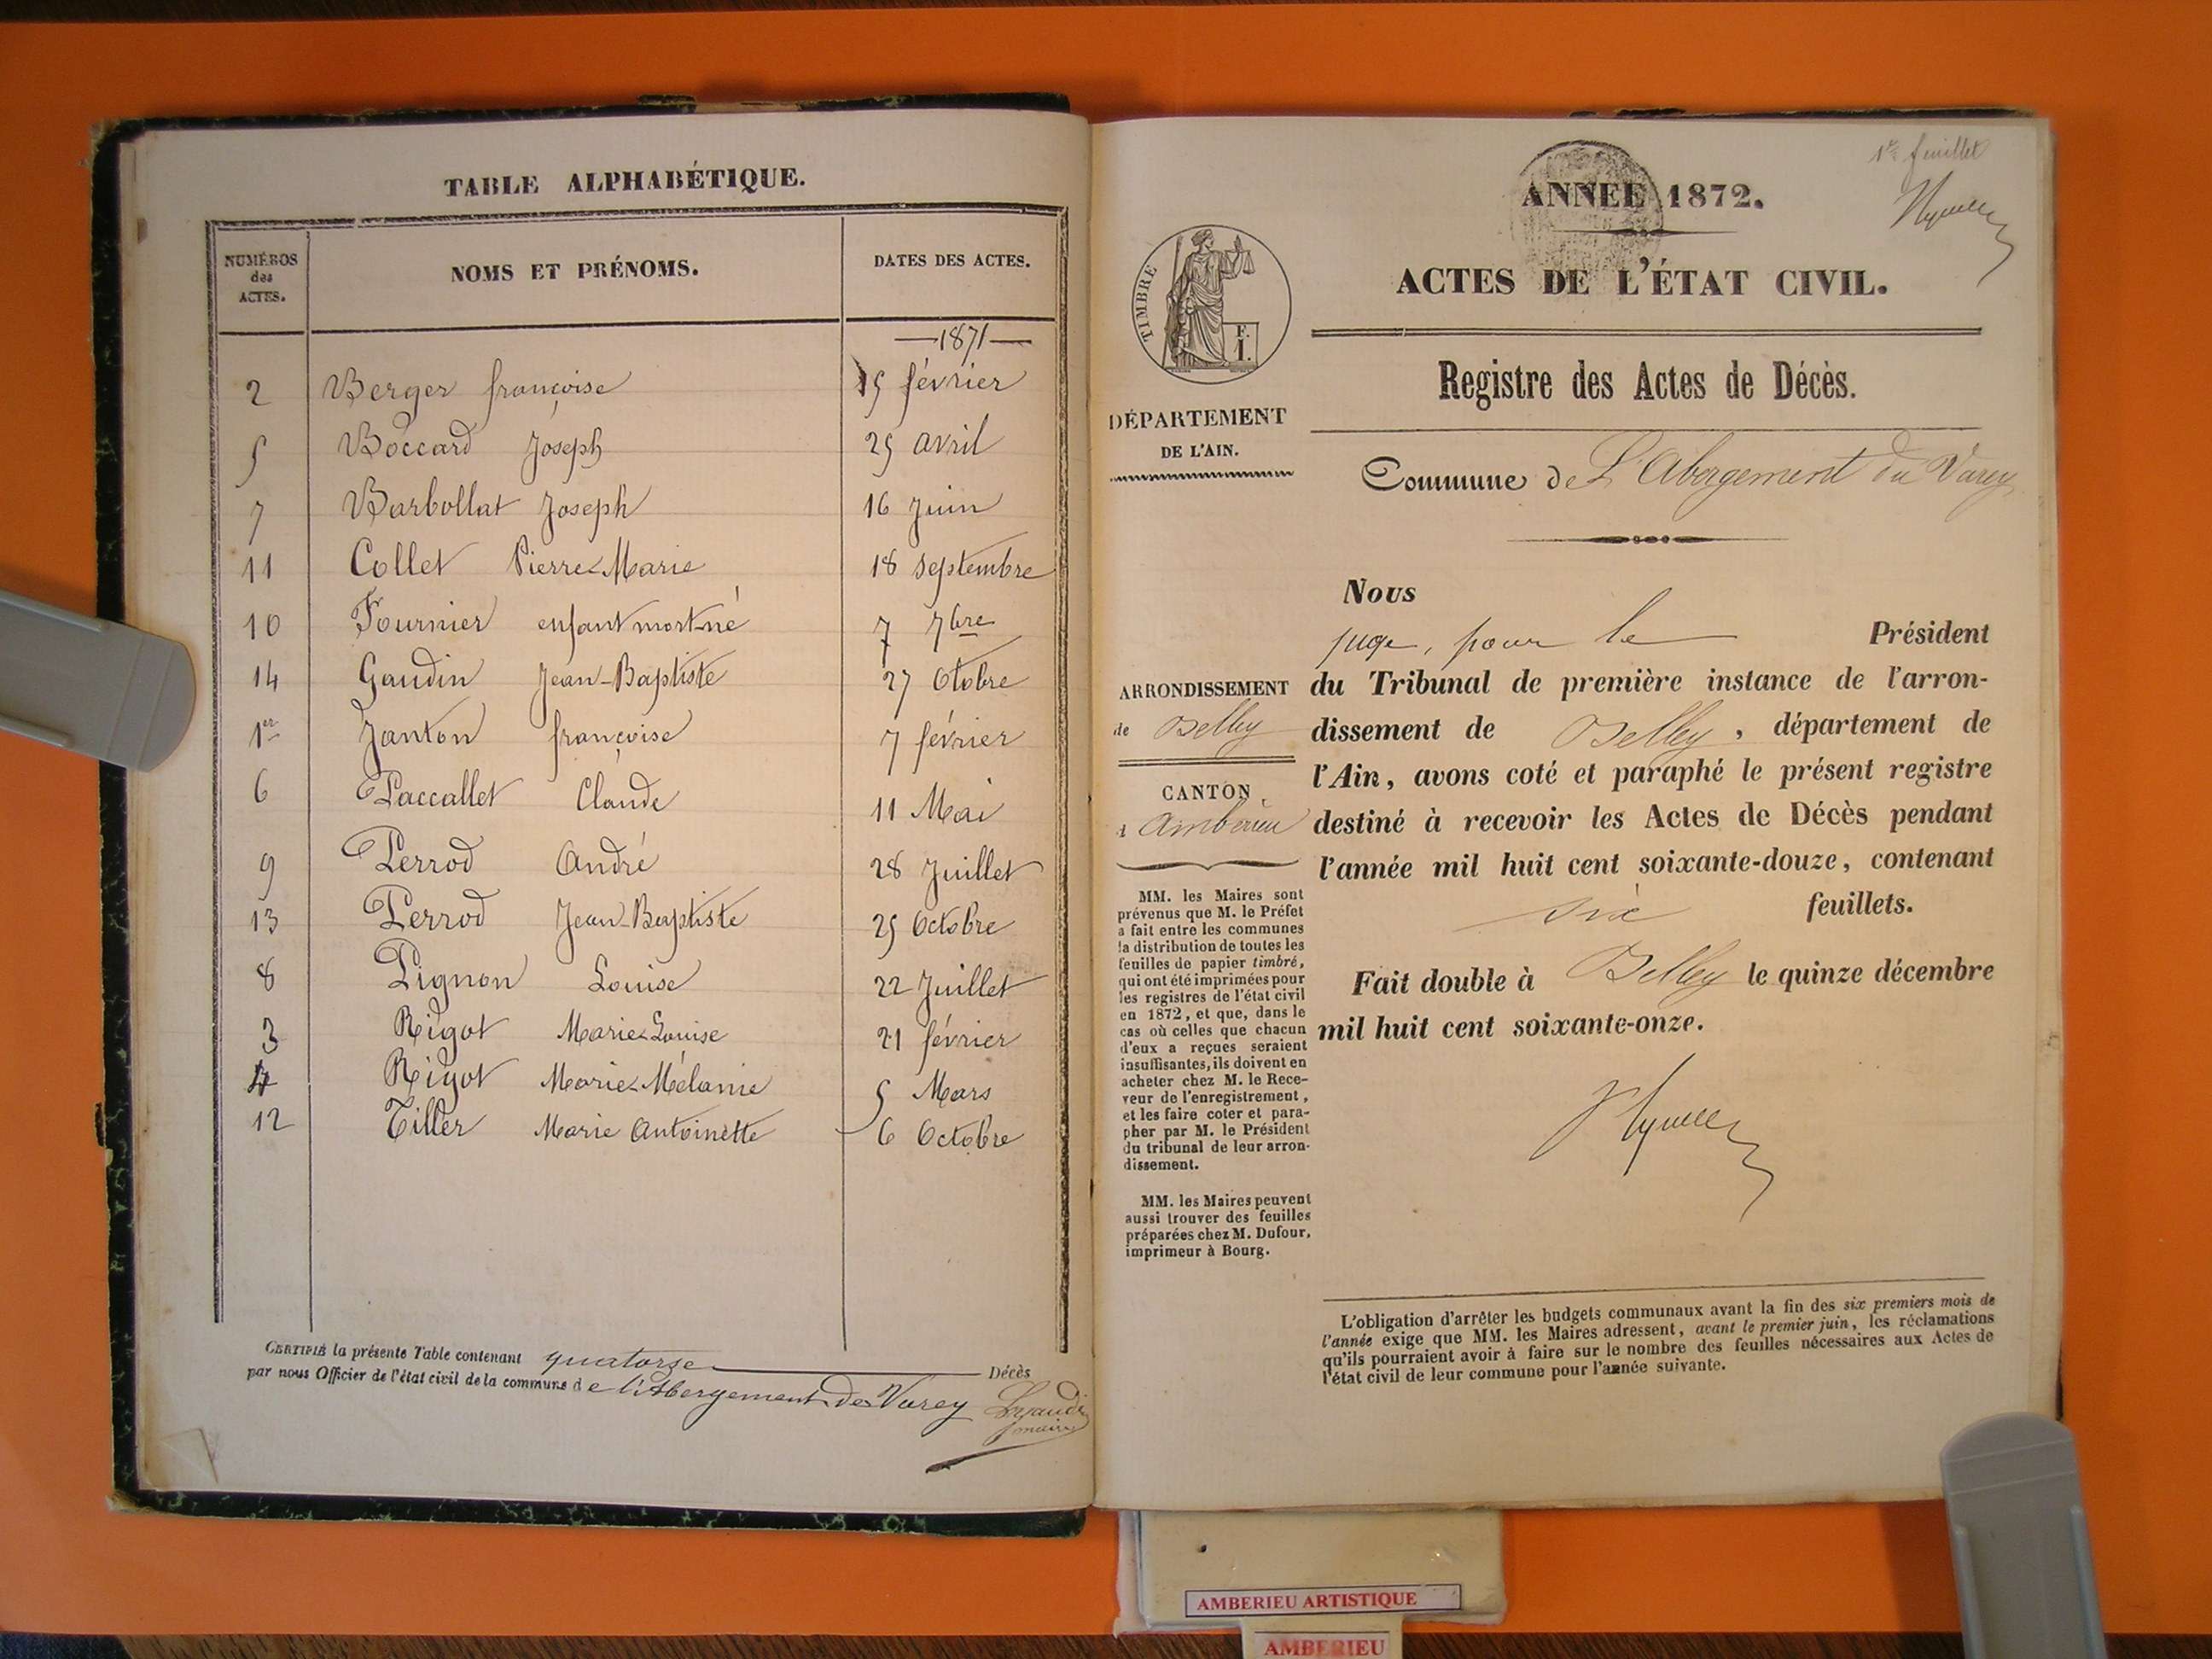 TABLE ALPHABÉTIQUE.
NUMÉROS des ACTES. NOMS ET PRÉNOMS. DATES DES ACTES.
—1871—
2 Berger françoise 15 février
5 Boccard Joseph 25 avril
7 Barbollat Joseph 16 Juin
11 Collet Pierre-Marie 18 septembre
10 Fournier enfant mort-né 7 7bre
14 Gaudin Jean-Baptiste 27 Otobre
1er Janton françoise 7 février
6 Paccallet Claude 11 Mai
9 Perrod André 28 Juillet
13 Perrod Jean-Baptiste 25 Octobre
8 Pignon Louise 22 Juillet
3 Rigot Marie-Louise 21 février
4 Rigot Marie-Mélanie 5 Mars
12 Tiller Marie Antoinette 6 Octobre
CERTIFIÉ la présente Table contenant quatorze Décès
par nous Officier de l'état civil de la commune de l'Abergement de Varey
maire
1er feuillet
ANNÉE 1872.
ACTES DE L'ÉTAT CIVIL.
TIMBRE
F.
I.
DÉPARTEMENT
DE L'AIN.
Registre des Actes de Décès.
Commune de L'Abergement du Varey
ARRONDISSEMENT
de Belley
CANTON
d'Ambérieu
MM. les Maires sont
prévenus que M. le Préfet
a fait entre les communes
la distribution de toutes les
feuilles de papier timbré,
qui ont été imprimées pour
les registres de l'état civil
en 1872, et que, dans le
cas où celles que chacun
d'eux a reçues seraient
insuffisantes, ils doivent en
acheter chez M. le Rece-
veur de l'enregistrement,
et les faire coter et para-
pher par M. le Président
du tribunal de leur arron-
dissement.
MM. les Maires peuvent
aussi trouver des feuilles
préparées chez M. Dufour,
imprimeur à Bourg.
Nous
juge, pour le Président
du Tribunal de première instance de l'arron-
dissement de Belley, département de
l'Ain, avons coté et paraphé le présent registre
destiné à recevoir les Actes de Décès pendant
l'année mil huit cent soixante-douze, contenant
six feuillets.
Fait double à Belley le quinze décembre
mil huit cent soixante-onze.
L'obligation d'arrêter les budgets communaux avant la fin des six premiers mois de
l'année exige que MM. les Maires adressent, avant le premier juin, les réclamations
qu'ils pourraient avoir à faire sur le nombre des feuilles nécessaires aux Actes de
l'état civil de leur commune pour l'année suivante.
AMBERIEU ARTISTIQUE
AMBERIEU